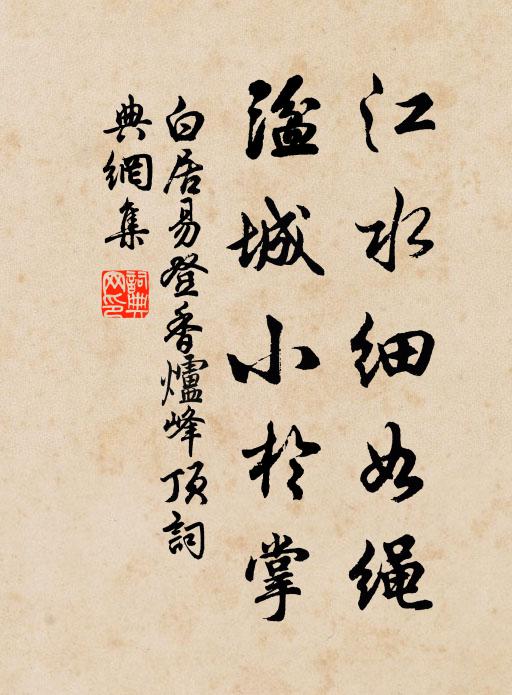 江水细如绳
湓城小於掌
白居易登香爐峰顶詞
典網集
詞典网印